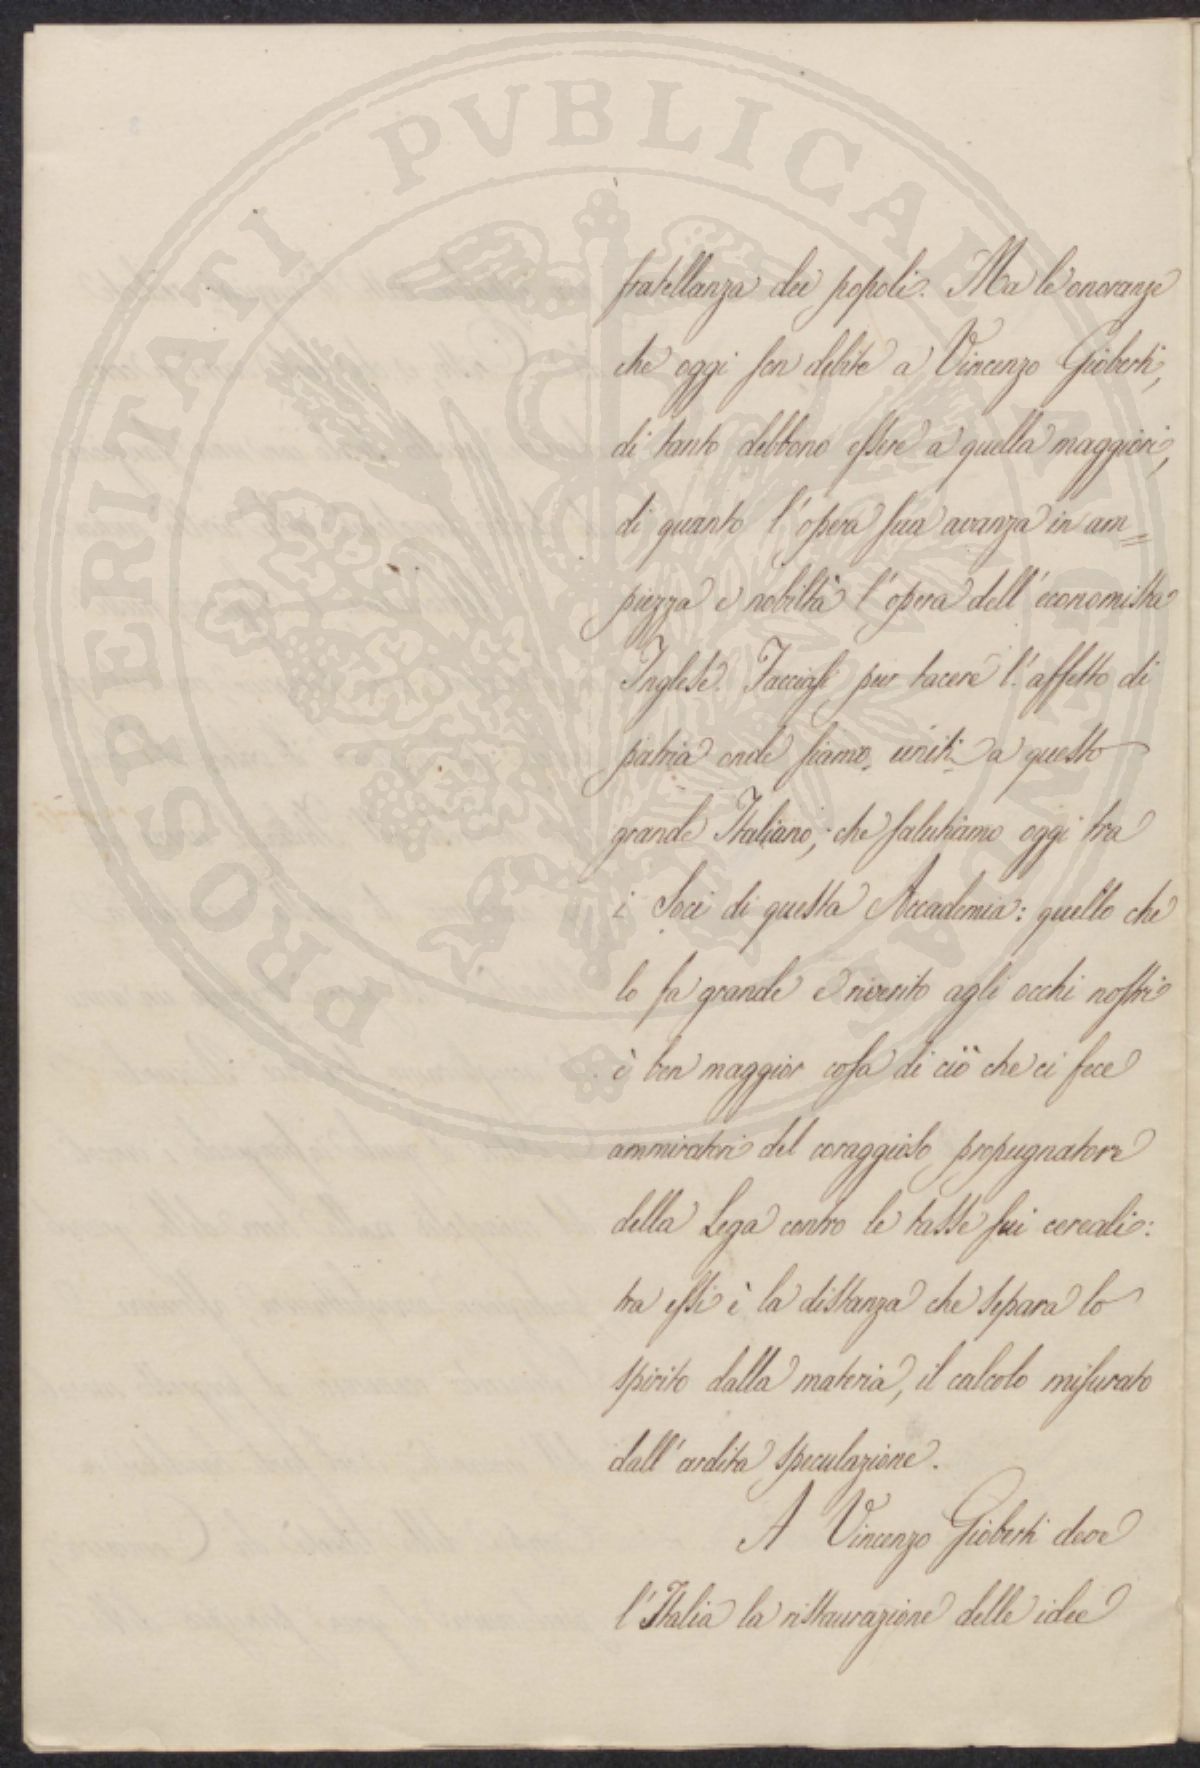 PROSPERITATI PVBLICAE AVGENDAE
fratellanza dei popoli. Ma le onoranze
che oggi son debite a Vincenzo Gioberti,
di tanto debbono essere a quella maggiori,
di quanto l'opera sua avanza in am=
piezza e nobiltà l'opera dell'economista
Inglese. Tacciasi pur tacere l'affetto di
patria onde siamo uniti a questo
grande Italiano, che salutiamo oggi tra
i Soci di questa Accademia: quello che
lo fa grande e riverito agli occhi nostri
è ben maggior cosa di ciò che ci fece
ammiratori del coraggioso propugnatore
della Lega contro le tasse sui cereali:
tra essi è la distanza che separa lo
spirito dalla materia, il calcolo misurato
dall'ardita speculazione.
A Vincenzo Gioberti deve
l'Italia la ristaurazione delle idee